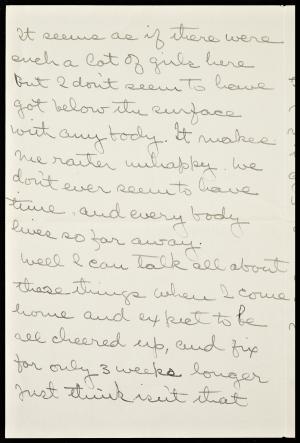 It seems as if there were
such a lot of girls here
but I don't seem to have
got below the surface
with any body. It makes
me rather unhappy. We
don't ever seem to have
time, and every body
lives so far away.
Well I can talk all about
these things when I come
home and expect to be
all cheered up, and fix
for only 3 weeks longer
Just think isn't that